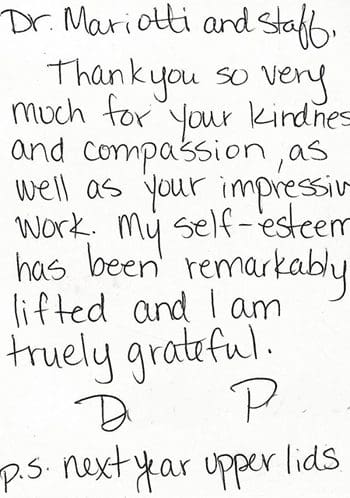 Dr. Mariotti and Staff,
Thank you so very
much for your kindnes
and compassion, as
well as your impressiv
work. My self-esteem
has been remarkably
lifted and I am
truely grateful.
D P
p.s. next year upper lids